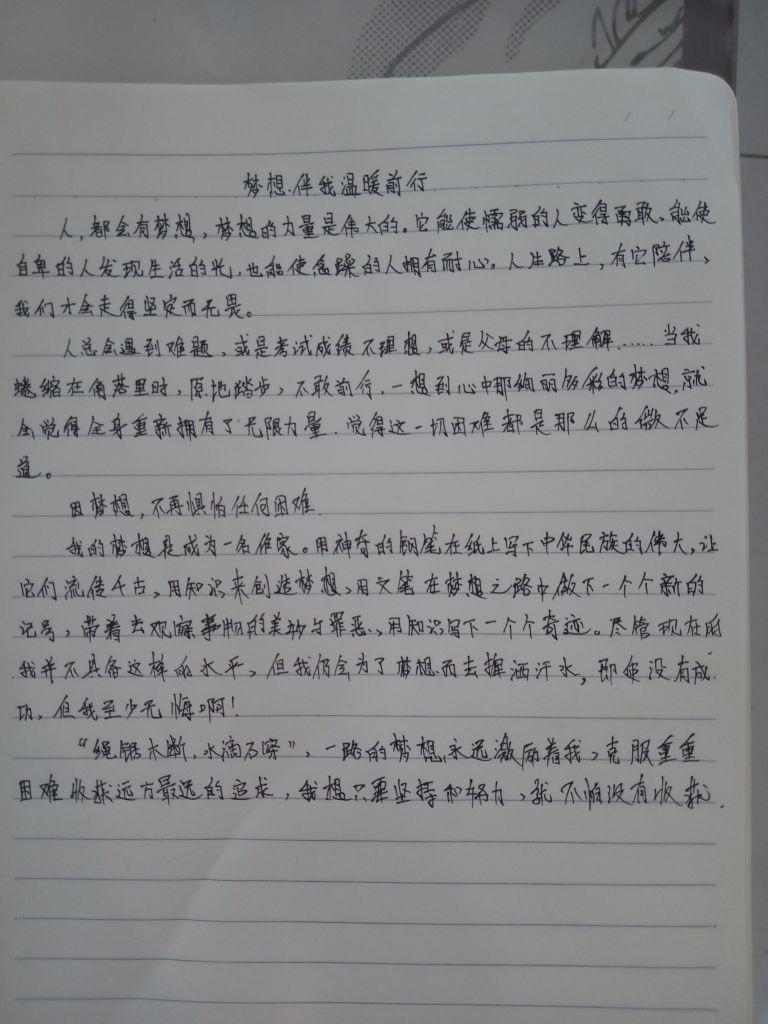 梦想伴我温暖前行
人,都会有梦想,梦想的力量是伟大的。它能使懦弱的人变得勇敢、能使
自卑的人发现生活的光,也能使急躁的人拥有耐心。人生路上,有它陪伴,
我们才会走得坚定而无畏。
人总会遇到难题,或是考试成绩不理想,或是父母的不理解……当我
蜷缩在角落里时,原地踏步,不敢前行,一想到心中那绚丽多彩的梦想,就
会觉得全身重新拥有了无限力量.觉得这一切困难都是那么的微不足
道。
因梦想,不再惧怕任何困难.
我的梦想是成为一名作家。用神奇的钢笔在纸上写下中华民族的伟大,让
它们流传千古,用知识来创造梦想、用文笔在梦想之路中做下一个个新的
记号,带着去观察事物的美妙与罪恶、用知识写下一个个奇迹。尽管现在的
我并不具备这样的水平,但我仍会为了梦想而去挥洒汗水,即使没有成
功,但我至少无悔啊!
“绳锯木断,水滴石穿”,一路的梦想,永远激励着我,克服重重
困难收获远方最远的追求,我想只要坚持和努力,就不怕没有收获.